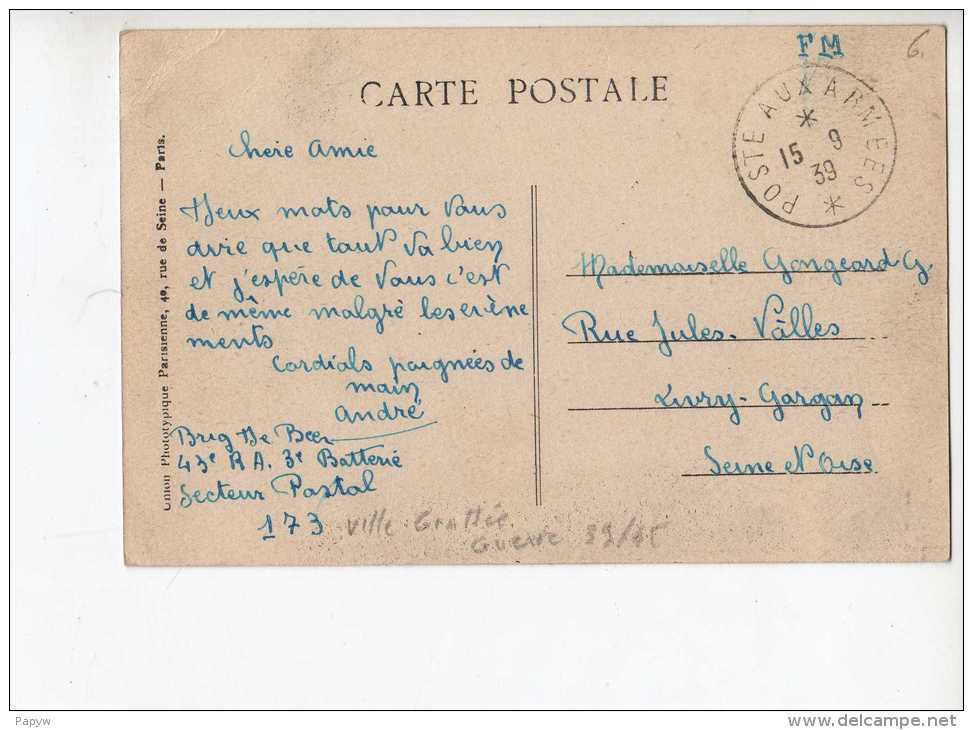 FM
6.
CARTE POSTALE
POSTE AUX ARMEES
15 9
39
Union Phototypique Parisienne, 40, rue de Seine — Paris.
Chere Amie
Deux mots pour vous
dire que tout va bien
et j'espère de vous c'est
de même malgré les evène
ments
Cordials poignées de
main
André
Brig De Beer
43e RA. 3e Batterie
Secteur Postal
173
Mademoiselle Gongeard G.
Rue Jules-Vâlles
Livry-Gargan
Seine et Oise
Ville Grattée
Guerre 39/45
Papyw
www.delcampe.net